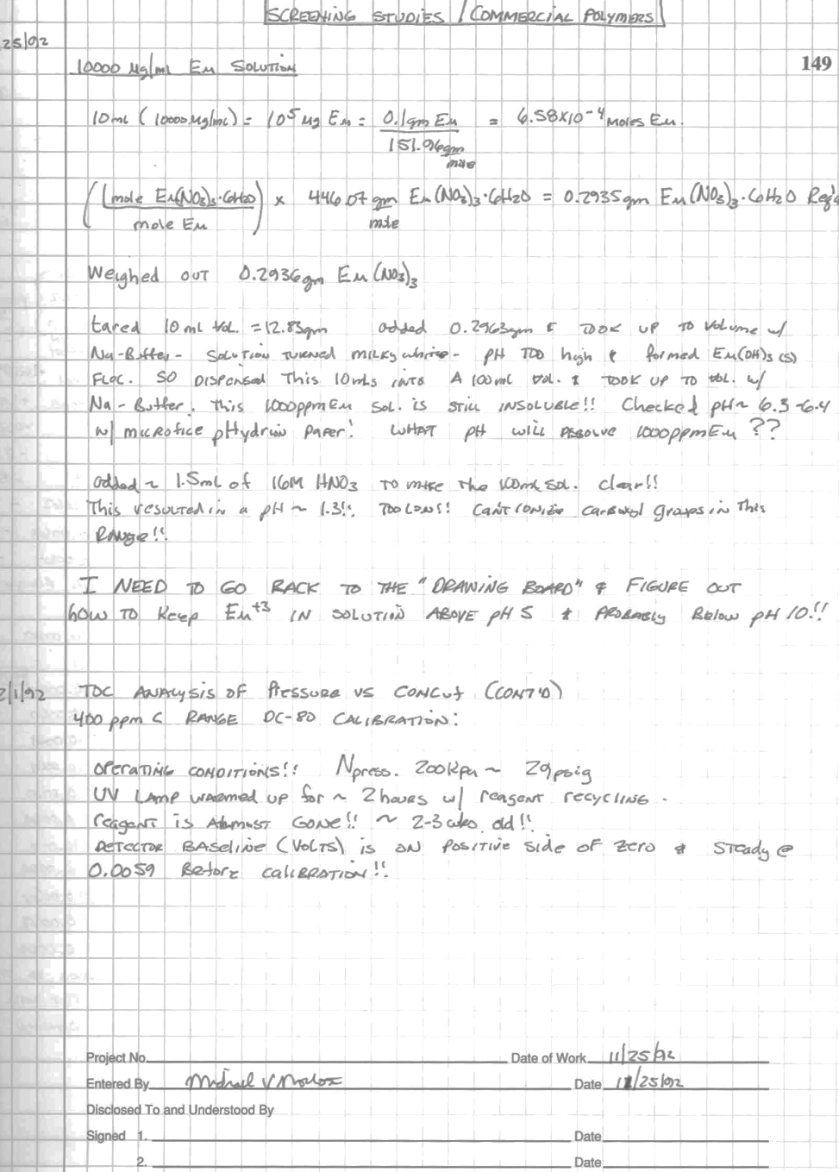 SCREENING STUDIES / COMMERCIAL POLYMERS
25/92
149
10000 µg/ml Eu SOLUTION
10mL (10000µg/mL) = 10^5 µg Eu = 0.1gm Eu / 151.96gm/mole = 6.58X10^-4 moles Eu.
(1mole Eu(NO3)3·6H2O / mole Eu) x 446.07 gm/mole Eu(NO3)3·6H2O = 0.2935gm Eu(NO3)3·6H2O Req'd
Weighed OUT 0.2936gm Eu(NO3)3
tared 10ml Vol. = 12.83gm added 0.2963gm & TOOK UP TO Volume w/
Na-Buffer - SOLUTION TURNED MILKY white - pH TOO high & formed Eu(OH)3 (s)
FLOC. SO DISPENSED This 10mls into A 100ml Vol. & TOOK UP TO Vol. w/
Na-Buffer. This 1000ppm Eu Sol. is still INSOLUBLE!! Checked pH~ 6.3-6.4
w/ microfine pHydrion PAPER! WHAT pH will RESOLVE 1000ppm Eu ??
added ~ 1.5mL of 16M HNO3 TO make The 100ml Sol. clear!!
This resulted in a pH ~ 1.3!! TOO LOW!! CAN'T IONIZE Carboxyl groups in This
RANGE!!
I NEED TO GO BACK TO THE "DRAWING BOARD" & FIGURE OUT
how TO Keep Eu+3 IN SOLUTION ABOVE pH 5 & PROBABLY Below pH 10!!
2/1/92 TOC ANALYSIS OF Pressure VS CONC (CONT'D)
400 ppm C RANGE DC-80 CALIBRATION:
OPERATING CONDITIONS!! Npress. 200Kpa ~ 29psig
UV LAMP WARMED UP for ~ 2 hours w/ reagent recycling.
reagent is Almost GONE!! ~ 2-3 wks old!!
DETECTOR BASELINE (VOLTS) is ON POSITIVE side OF Zero & STeady @
0.0059 Before CALIBRATION!!
Project No.
Date of Work 11/25/92
Entered By Michael V
Date 11/25/92
Disclosed To and Understood By
Signed 1. Date
2. Date